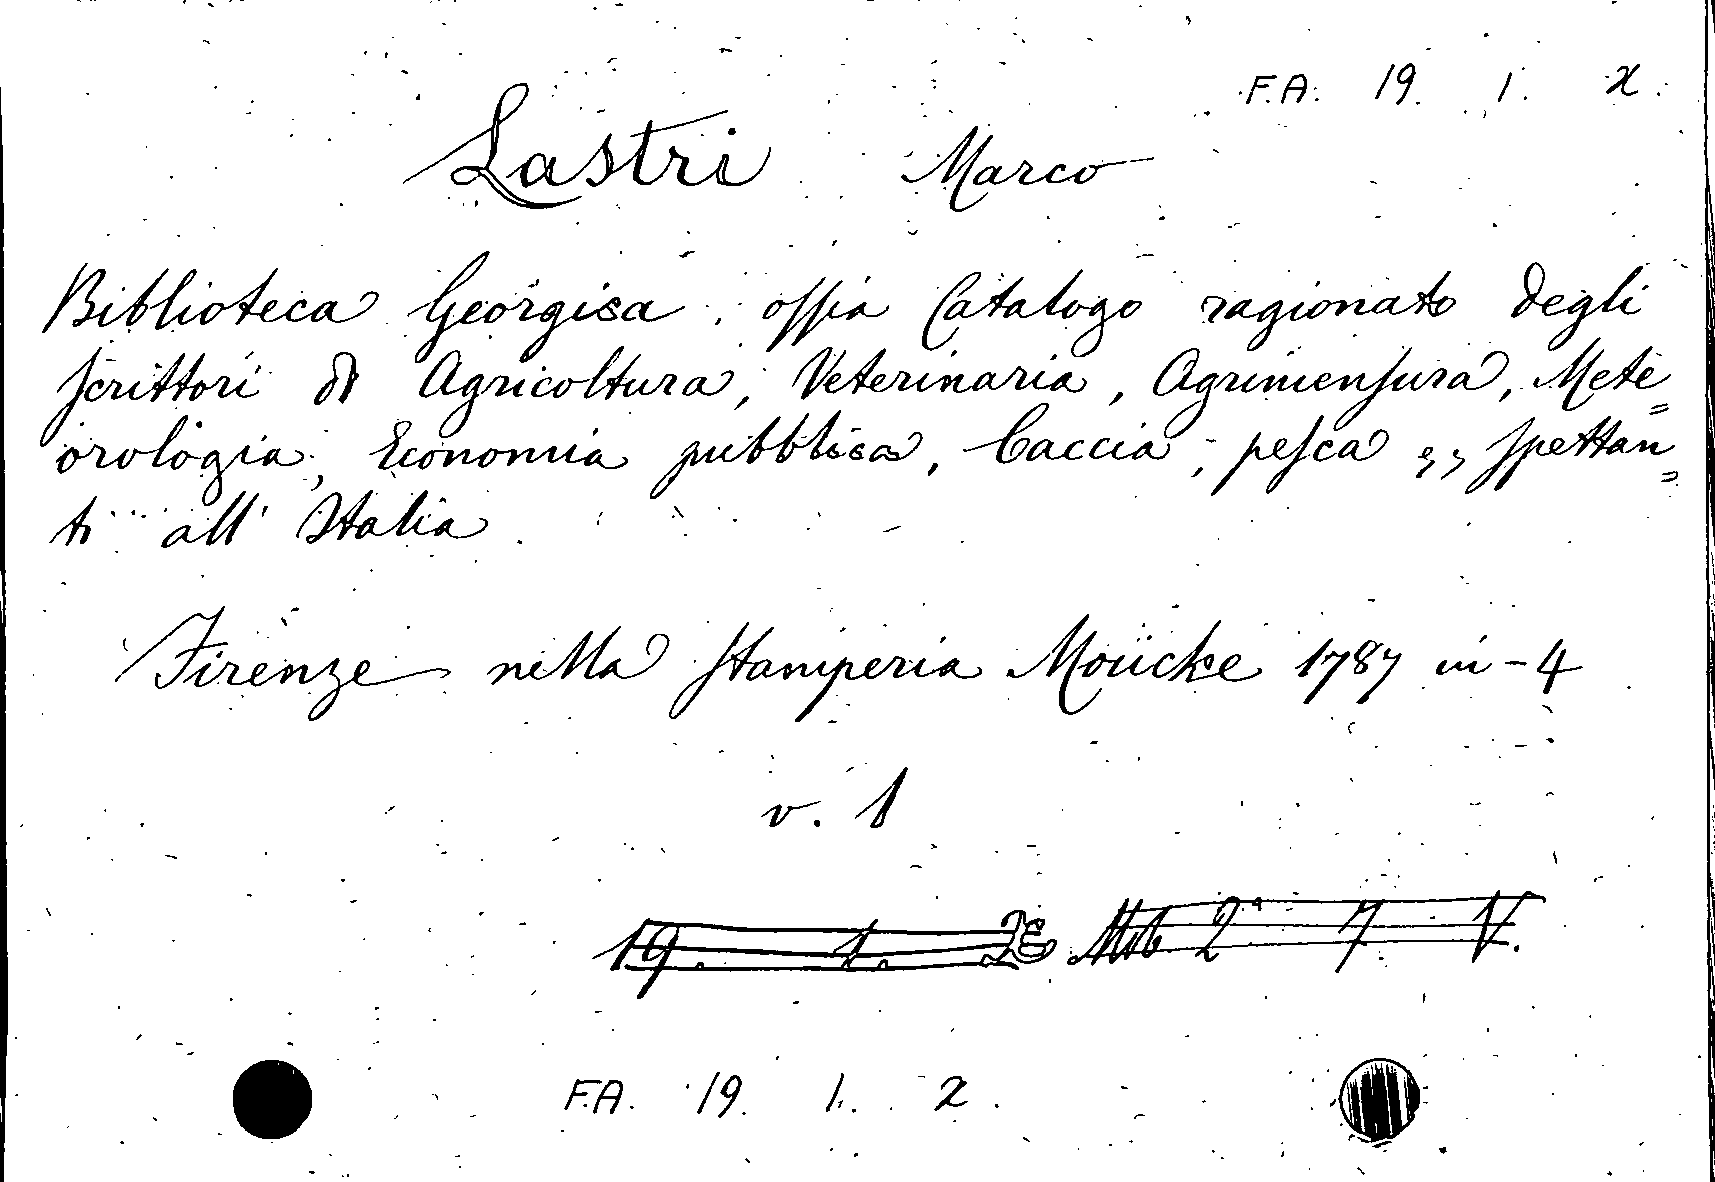 F.A. 19. 1. 2.
Lastri Marco
Biblioteca Georgica ossia Catalogo ragionato degli
scrittori di Agricoltura, Veterinaria, Agrimensura, Mete=
orologia, Economia pubblica, Caccia, pesca ec, spettan=
ti all' Italia
Firenze nella stamperia Moücke 1787 in-4
v. 1
19. 1. 26 Mob 2ª 7 V.
F.A. 19. 1. 2.